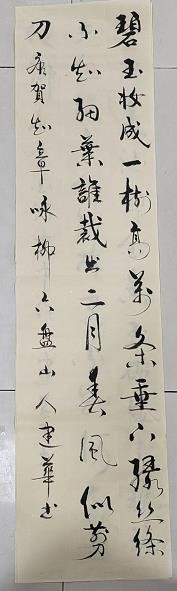 碧玉妆成一树高万条垂下绿丝绦
不知细葉誰裁出二月春风似剪
刀 唐賀知章咏柳六盘山人建華书